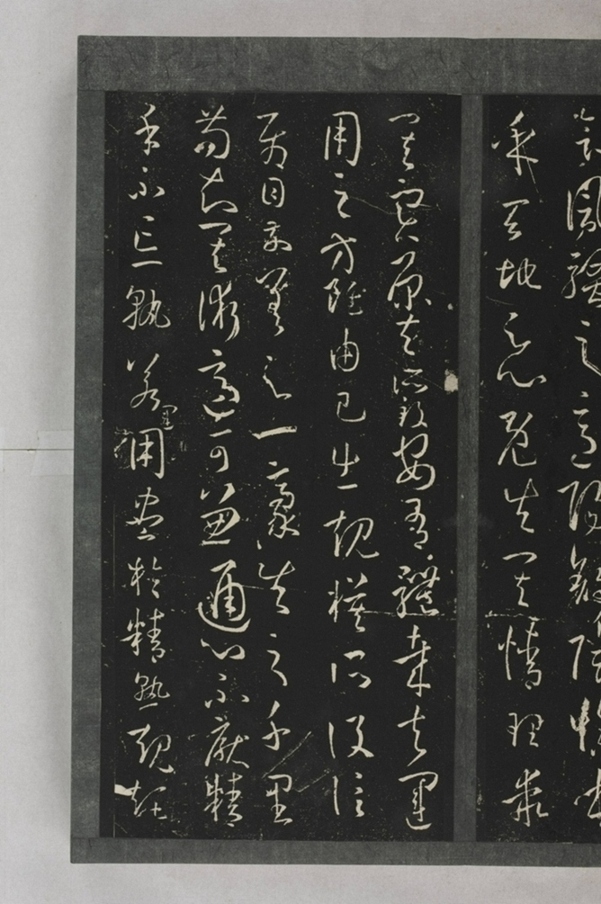 會風騷之意陽舒陰慘本
乎天地之心既失其情理乖
其實原夫所致安有體哉夫運
用之方雖由己出規模所設信
屬目前差之一豪失之千里
苟知其術適可兼通心不厭精
手不忘熟若運用盡於精熟規矩